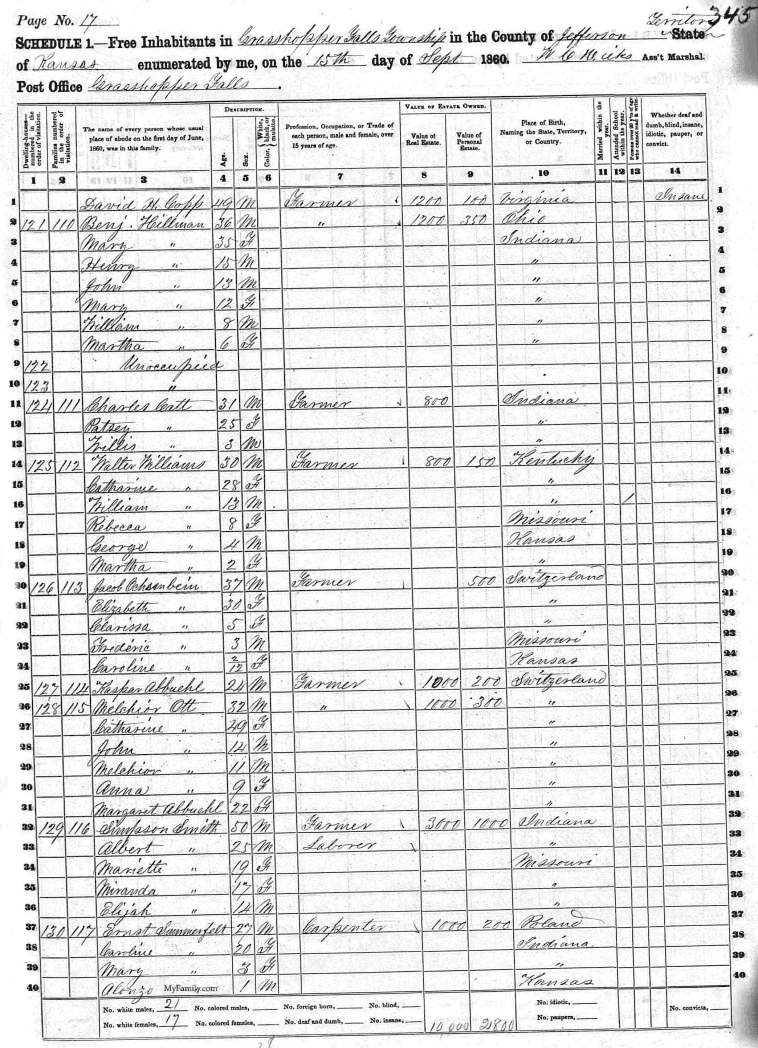 Page No. 17 Territory 345
SCHEDULE 1.—Free Inhabitants in Grasshopper Falls Township in the County of Jefferson State
of Kansas enumerated by me, on the 15th day of Sept 1860. Ass't Marshal.
Post Office Grasshopper Falls.
Dwelling-houses—numbered in the order of visitation. Families numbered in the order of visitation. The name of every person whose usual place of abode on the first day of June, 1860, was in this family. DESCRIPTION. Age. Sex. Color, White, black, or mulatto. Profession, Occupation, or Trade of each person, male and female, over 15 years of age. VALUE OF ESTATE OWNED. Value of Real Estate. Value of Personal Estate. Place of Birth, Naming the State, Territory, or Country. Married within the year. Attended School within the year. Persons over 20 y'rs of age who cannot read & write. Whether deaf and dumb, blind, insane, idiotic, pauper, or convict.
1 2 3 4 5 6 7 8 9 10 11 12 13 14
1 David H. Copp 49 M Farmer 1200 100 Virginia Insane 1
2 121 110 Benj. Hillman 36 M " 1200 350 Ohio 2
3 Mary " 35 F Indiana 3
4 Henry " 15 M " 4
5 John " 13 M " 5
6 Mary " 12 F " 6
7 William " 8 M " 7
8 Martha " 6 F " 8
9 122 Unoccupied 9
10 123 " 10
11 124 111 Charles Catt 31 M Farmer 800 Indiana 11
12 Patsey " 25 F " 12
13 Willis " 3 M " 13
14 125 112 Walter Williams 30 M Farmer 800 150 Kentucky 14
15 Catharine " 28 F " 15
16 William " 13 M " / 16
17 Rebecca " 8 F Missouri 17
18 George " 4 M Kansas 18
19 Martha " 2 F " 19
20 126 113 Jacob Ochsenbein 37 M Farmer 500 Switzerland 20
21 Elizabeth " 30 F " 21
22 Clarissa " 5 F " 22
23 Frederic " 3 M Missouri 23
24 Caroline " 2/12 F Kansas 24
25 127 114 Kasper Abbuehl 24 M Farmer 1000 200 Switzerland 25
26 128 115 Melchior Ott 32 M " 1000 300 " 26
27 Catharine " 49 F " 27
28 John " 14 M " 28
29 Melchior " 11 M " 29
30 Anna " 9 F " 30
31 Margaret Abbuehl 22 F " 31
32 129 116 Simpson Smith 50 M Farmer 3000 1000 Indiana 32
33 Albert " 25 M Laborer " 33
34 Mariette " 19 F Missouri 34
35 Miranda " 17 F " 35
36 Elijah " 14 M " 36
37 130 117 Ernst Summerfelt 27 M Carpenter 1000 200 Poland 37
38 Carline " 20 F Indiana 38
39 Mary " 3 F " 39
40 Alonzo MyFamily.com 1 M Kansas 40
No. white males, 21 No. colored males, No. foreign born, No. blind, No. idiotic,
No. white females, 17 No. colored females, No. deaf and dumb, No. insane, 10,000 2800 No. paupers, No. convicts,